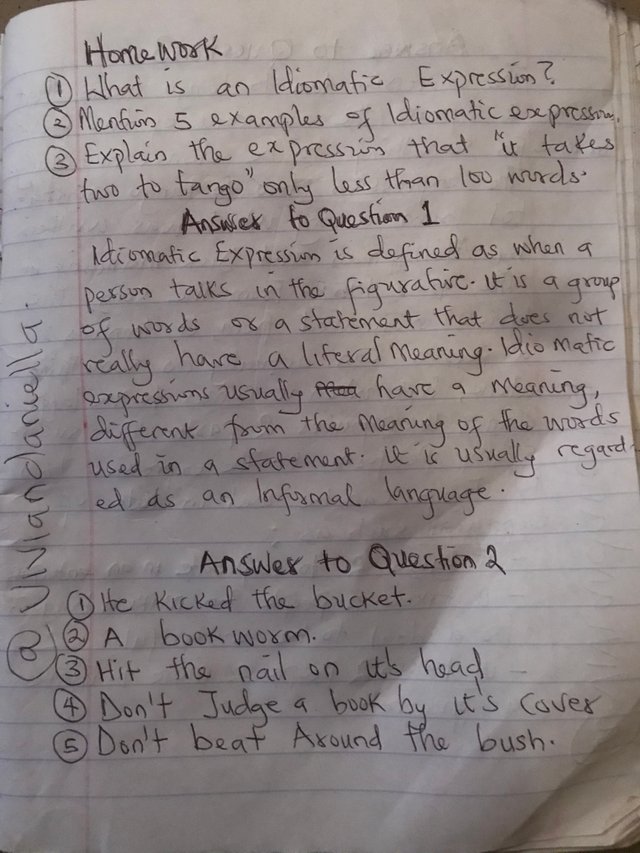 Homework
① What is an Idiomatic Expression?
② Mention 5 examples of Idiomatic expression.
③ Explain the expression that "it takes
two to tango" only less than 100 words.
Answer to Question 1
Idiomatic Expression is defined as when a
person talks in the figurative. it is a group
of words or a statement that does not
really have a literal Meaning. Idiomatic
expressions usually have a Meaning,
different from the Meaning of the words
used in a statement. it is usually regard-
ed as an Informal language.
Answer to Question 2
① He Kicked the bucket.
② A book worm.
③ Hit the nail on it's head
④ Don't Judge a book by it's cover
⑤ Don't beat Around the bush.